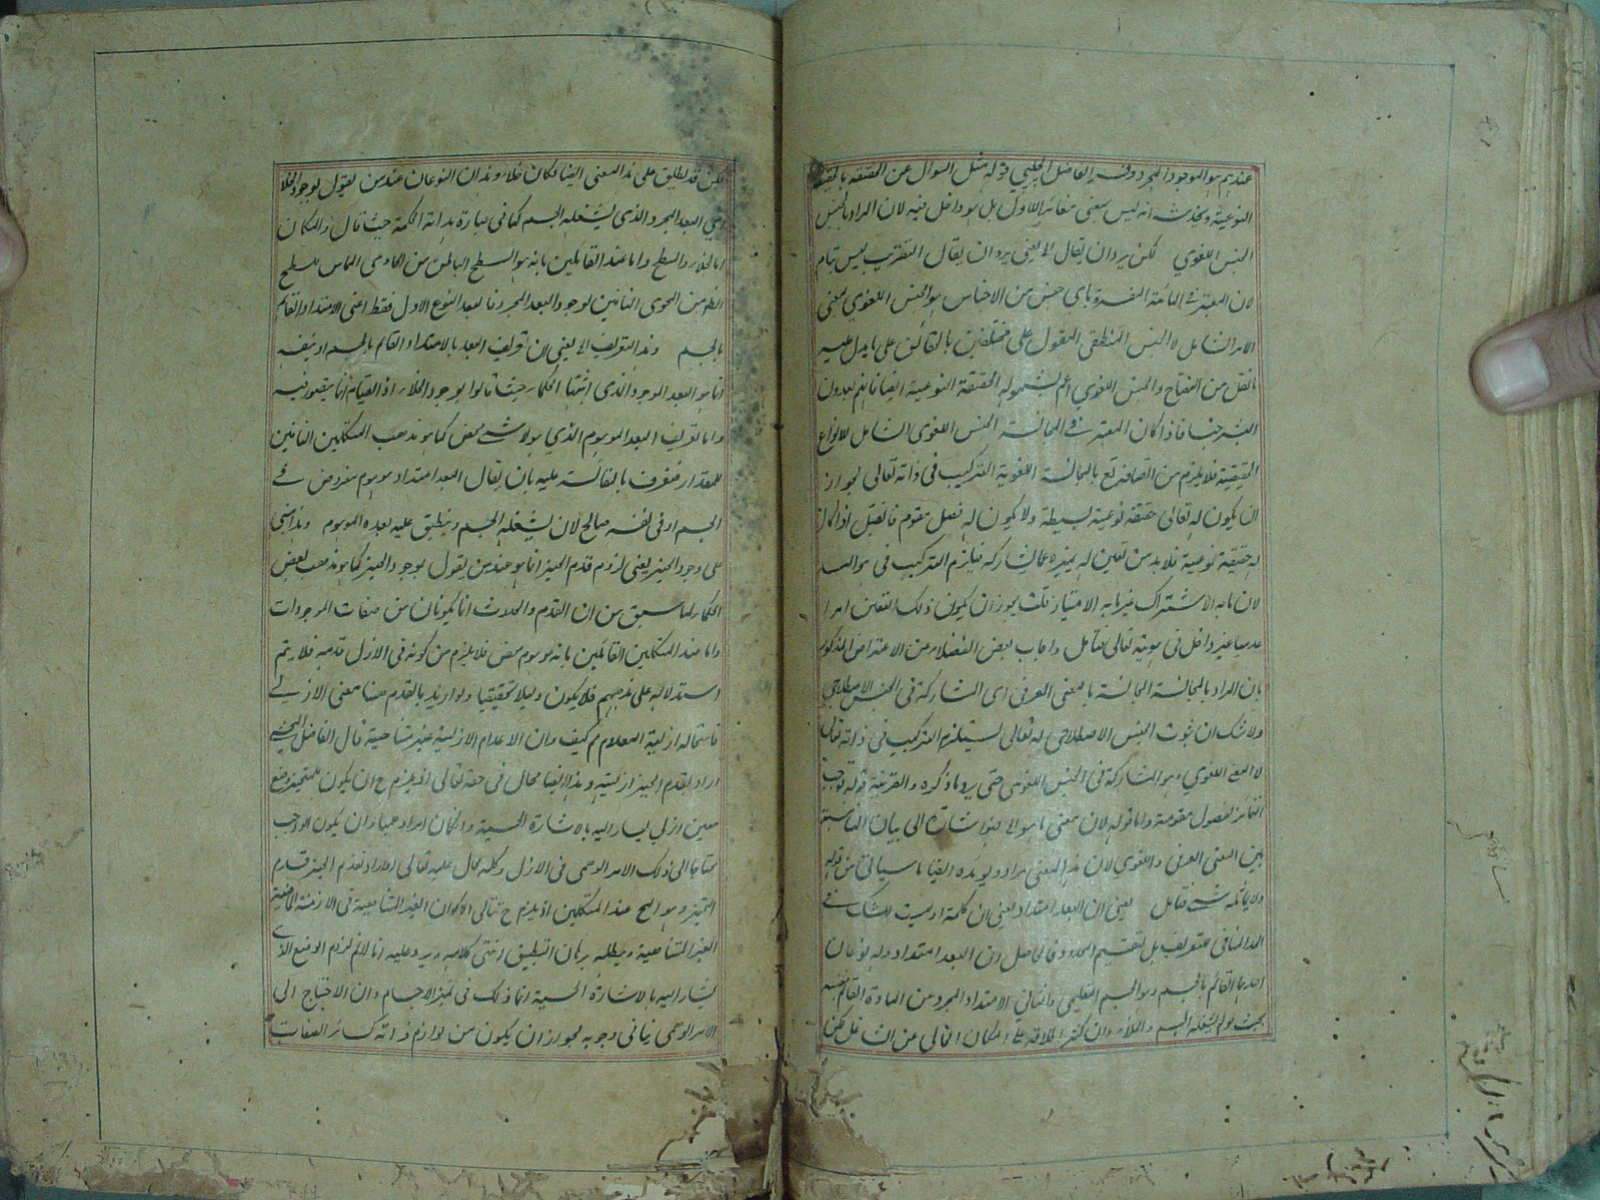 عندهم هو الموجود المجرد وفيه الفاضل الچلپي قوله مثل السوال عن الحقيقة بالحقيقة
النوعية وبحدث انه ليس بمعنى مغائر للاول بل هو داخل فيه لان المراد بالجنس
الجنس اللغوي لكن يرد ان يقال الخ يعنى يرد ان يقال التقريب ليس بتام
لان المعتبر في المائية المفسرة باى جنس من الاجناس هو الجنس اللغوي بمعنى
الامر الشامل لا الجنس المنطقي المقول على مختلفين بالحقائق على ما يدل عليه
ما نقل من المفتاح والجنس اللغوي اعم لشموله الحقيقة النوعية ايضا فانهم يعدون
البشر جنسا فاذا كان المعتبر في المجانسة الجنس اللغوى الشامل للانواع
الحقيقية فلا يلزم من اتصافه تع بالمجانسة اللغوية التركيب فى ذاته تعالى لجواز
ان يكون له تعالى حقيقة نوعية بسيطة ولا يكون له فصل مقوم فان قيل اذا كان
له حقيقة نوعية فلا بد من تعين له يميزه عما يشاركه فيلزم التركيب فى هوالسا
لان ما به الاشتراك غير ما به الامتياز قلت يجوز ان يكون ذلك التعين امرا
عدميا غير داخل فى هويته تعالى فتامل واجاب بعض الفضلاء من الاعتراض المذكور
بان المراد بالمجانسة المجانسة بالمعنى العرفى اى المشاركة فى الجنس الاصطلاحي
ولا شك ان ثبوت الجنس الاصطلاحى له تعالى يستلزم التركيب فى ذاته تعالى
لا المعنى اللغوي هو المشاركة فى الجنس اللغوى حتى يرد ما ذكره والقرينة قوله توجب
التمائز بفصول مقومة واما قوله لان معنى ما هو الخ فهو اشارة الى بيان المناسبة
بين المعنى العرفى واللغوي لان هذا المعنى مراد ويؤيده ايضا ما سياتى من قوله
ولا يماثله شى فتامل يعنى ان البعد امتداد يعنى ان كلمة او ليست للشك فى
المنافى للتعريف بل لتقسيم المحدود فالحاصل ان البعد امتداد وله نوعان
احدهما القائم بالجسم وهو الجسم التعليمى والثانى الامتداد المجرد عن المادة القائم بنفسه
بحيث لو لم يشغله الجسم والخلاء وان كثر اطلاقه على المكان الخالى عن الشاغل لكن
لكن قد يطلق على هذا المعنى ايضا فكان خلاء وهذان النوعان عند من يقول بوجود الخلا
اعني البعد المجرد الذى يشغله الجسم كما فى عبارة هداية الحكمة حيث قال والمكان
اما الخلاء والسطح واما عند القائلين بانه هو السطح الباطن من الحاوى المماس للسطح
الظاهر من المحوى النافين لوجود البعد المجرد فالبعد النوع الاول فقط اعنى الامتداد القائم
بالجسم وهذا التعريف الخ يعنى ان تعريف البعد بالامتداد القائم بالجسم او بنفسه
انما هو البعد الموجود الذى اثبتها الحكماء حيث قالوا بوجود الخلاء اذ القيام انما يتصور فيه
واما تعريف البعد الموهوم الذي هو لا شى محض كما هو مذهب المتكلمين النافين
للمقدار فتعرف بالمقائسة عليه بان يقال البعد امتداد موهوم مفروض فى
الجسم او فى نفسه صالح لان يشغله الجسم وينطبق عليه بعده الموهوم وهذا مبنى
على وجود الحيز يعنى لزوم قدم الحيز انما هو عند من يقول بوجود الحيز كما هو مذهب بعض
الحكماء لما سبق من ان القدم والحدوث انما يكونان من صفات الموجودات
واما عند المتكلمين القائلين بانه موهوم محض فلا يلزم من كونه فى الازل قدمه فلا يتم
استدلاله على مذهبهم فلا يكون دليلا تحقيقيا ولو اريد بالقدم هنا معنى الازلي
فاستحالة ازلية المعدوم مم كيف وان الاعدام الازلية غير متناهية قال الفاضل المحشي
اراد بقدم الحيز ازليته وهذا ايضا محال فى حقه تعالى اذ يلزم ح ان يكون للمتحيز وضع
معين ازلي يشار اليه بالاشارة الحسية والمكان امرا وهميا وان يكون الواجب
محتاجا الى ذلك الامر الوهمى فى الازل وكله محال عليه تعالى او اراد بقدم الحيز قدم
التحيز وهو المح عند المتكلمين اذ يلزم ح تتالى الاكوان الغير المتناهية فى الازمنة الماضية
الغير المتناهية ويبطله برهان التطبيق انتهى كلامه ويرد عليه انا لانم لزوم الوضع الازلى
المشار اليه بالاشارة الحسية انما ذلك فى تحيز الاجسام وان الاحتياج الى
الامر الوهمى ينافى وجوبه لجواز ان يكون من لوازم ذاته كسائر الصفات